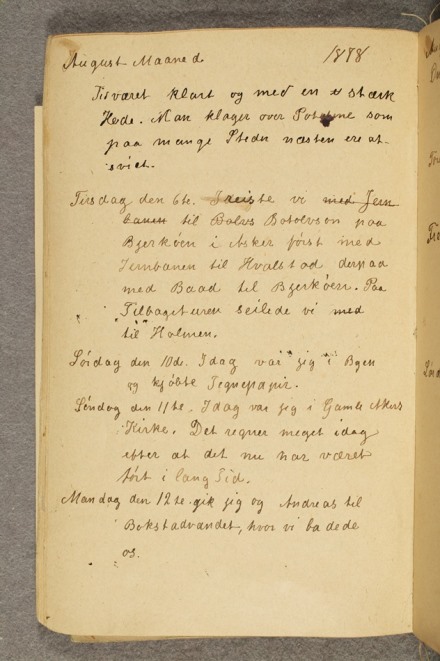 August Maaned 1878
Tirværet klart og med en stærk
Hede. Man klager over Potetene som
paa mange Steder næsten ere af-
sviet.
Tirsdag den 6te. reiste vi med Jern
banen til Bolvs Botolvson paa
Bjerkóen i Asker först med
Jernbanen til Hvalstad derpaa
med Baad til Bjerkóen. Paa
Tilbageturen seilede vi med
til Holmen.
Lórdag den 10de. Idag var jig i Byen
og kjóbte Tegnepapir.
Sóndag den 11te. Idag var jig i Gamle Akers
Kirke. Det regner meget idag
efter at det nu har været
tórt i lang Tid.
Mandag den 12te gik jig og Andreas til
Bokstadvandet, hvor vi badede
os.